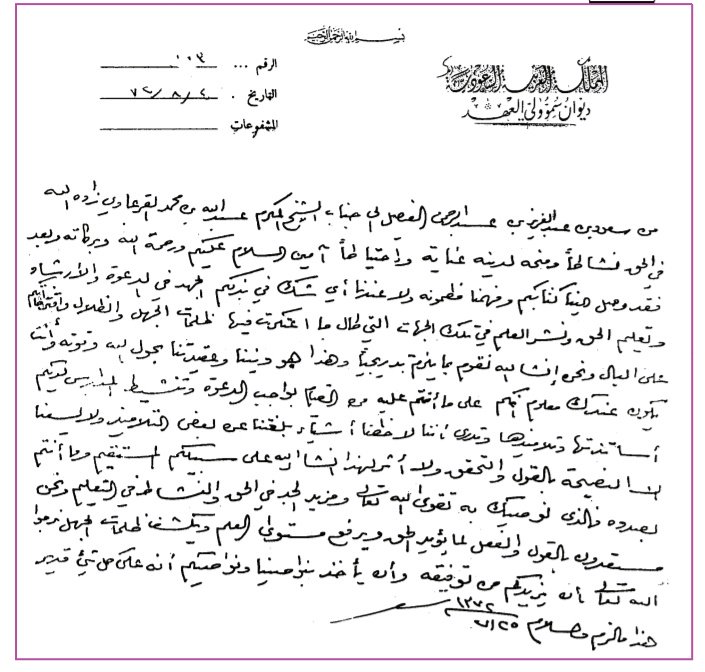 بسم الله الرحمن الرحيم
المملكة العربية السعودية
ديوان سمو ولي العهد
الرقم ... ١٠٣
التاريخ . ٧٢/٨/٤
المشفوعات
من سعود بن عبدالعزيز بن عبدالرحمن الفيصل الى جناب الشيخ المكرم عبدالله بن محمد القرعاوي زاده الله
في الحق نشاطاً ومنحه لدينه عناية واحتياطاً آمين السلام عليكم ورحمة الله وبركاته وبعد
فقد وصل إلينا كتابكم وفهمنا مضمونه ولا عندنا أي شك في بذلكم الجهد في الدعوة والارشاد
وتعليم الحق ونشر العلم في تلك الجهات التي طال ما اعتكرت فيها ظلمات الجهل والظلال
على البال ونحن إنشاء الله نقوم بما يلزم تدريجياً وهذا هو ديننا وعقيدتنا بحول الله وقوته وأنت
يكون عندك معلوم أنكم على ما أنتم عليه من القيام بواجب الدعوة وتنشيط المدارس لديكم
أساتذتها وتلاميذها وترى أننا لاحظنا أشياء بلغتنا عن بعض التلاميذ ولا يسعنا
الا النصيحة بالقول والتحقق ولا أثر لهذا انشاء الله على سبيلكم المستقيم وما أنتم
بصدده فالذي نوصيك به تقوى الله تعالى ومزيد الجد في الحق والنشاط في التعليم ونحن
مستعدون بالقول والفعل لما يؤيد الحق ويرفع مستوى العلم ويكشف ظلمات الجهل نرجوا
الله تعالى بأن يزيدكم من توفيقه وأن يأخذ بنواصينا ونواصيكم أنه على كل شيء قدير
هذا ما لزم والسلام ١٣٧٢